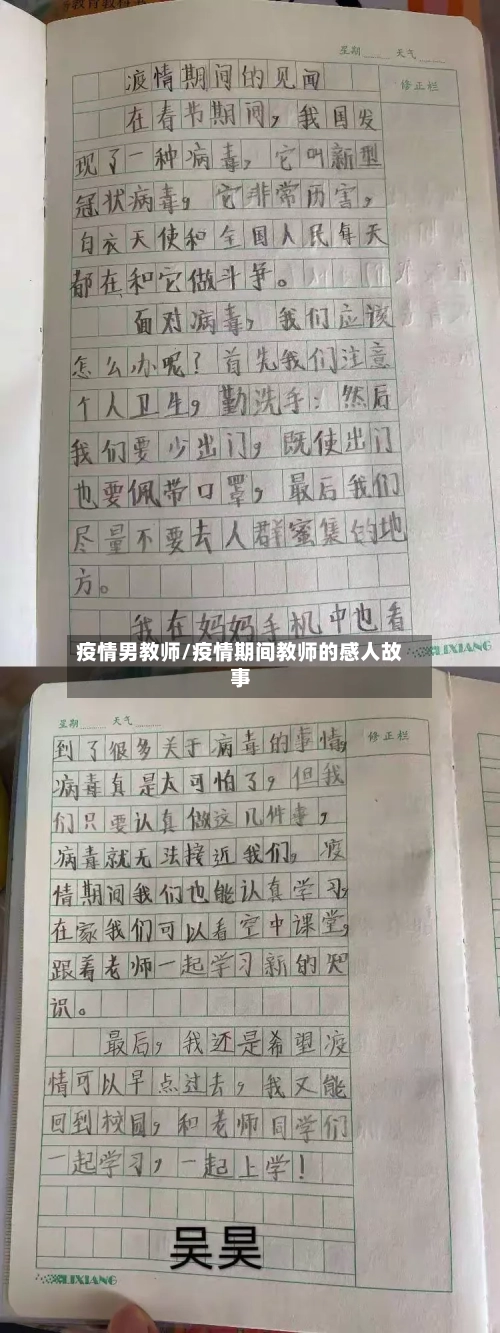 星期 天气
修正栏
疫情期间的见闻
在春节期间，我国发
现了一种病毒，它叫新型
冠状病毒，它非常厉害，
白衣天使和全国人民每天
都在和它做斗争。
面对病毒，我们应该
怎么办呢？首先我们注意
个人卫生，勤洗手；然后
我们要少出门，既使出门
也要佩带口罩，最后我们
尽量不要去人群蜜集的地
方。
我在妈妈手机中也看
LIXIANG
疫情男教师/疫情期间教师的感人故
事
星期 天气
修正栏
到了很多关于病毒的事情，
病毒真是太可怕了，但我
们只要认真做这几件事，
病毒就无法接近我们，疫
情期间我们也能认真学习，
在家我们可以看空中课堂，
跟着老师一起学习新的知
识。
最后，我还是希望疫
情可以早点过去，我又能
回到校园，和老师同学们
一起学习，一起上学！
吴昊
LIXIANG